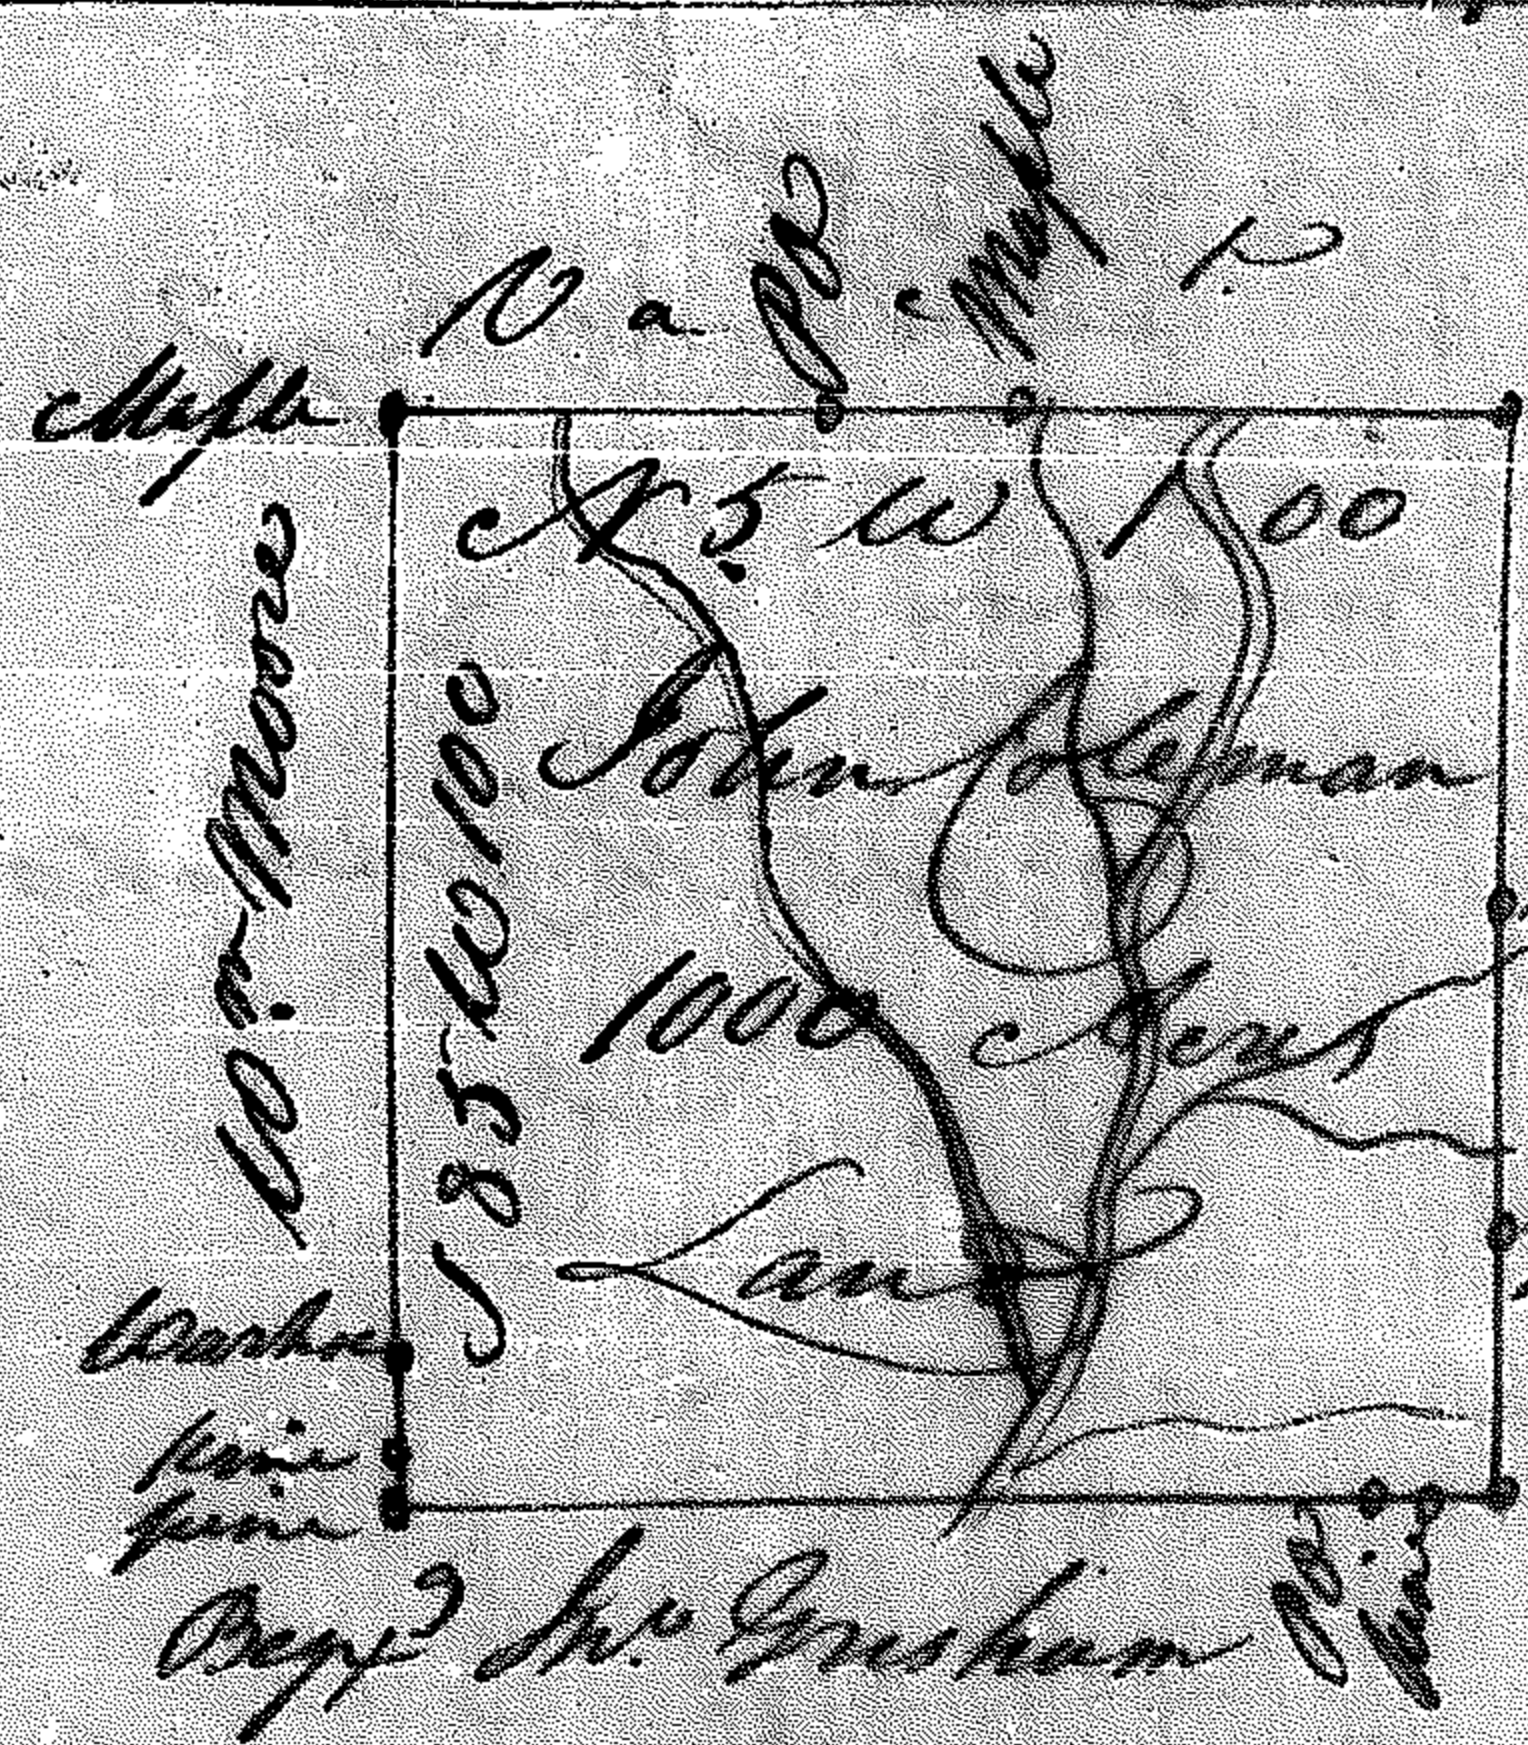 V a c
P.O.
Maple
Maple
N 5 W 100
Wm Moore
S 85 W 100
John Coleman
1000 Acres
Land
pine
pine
Beg
Jno. Gresham
P.O.